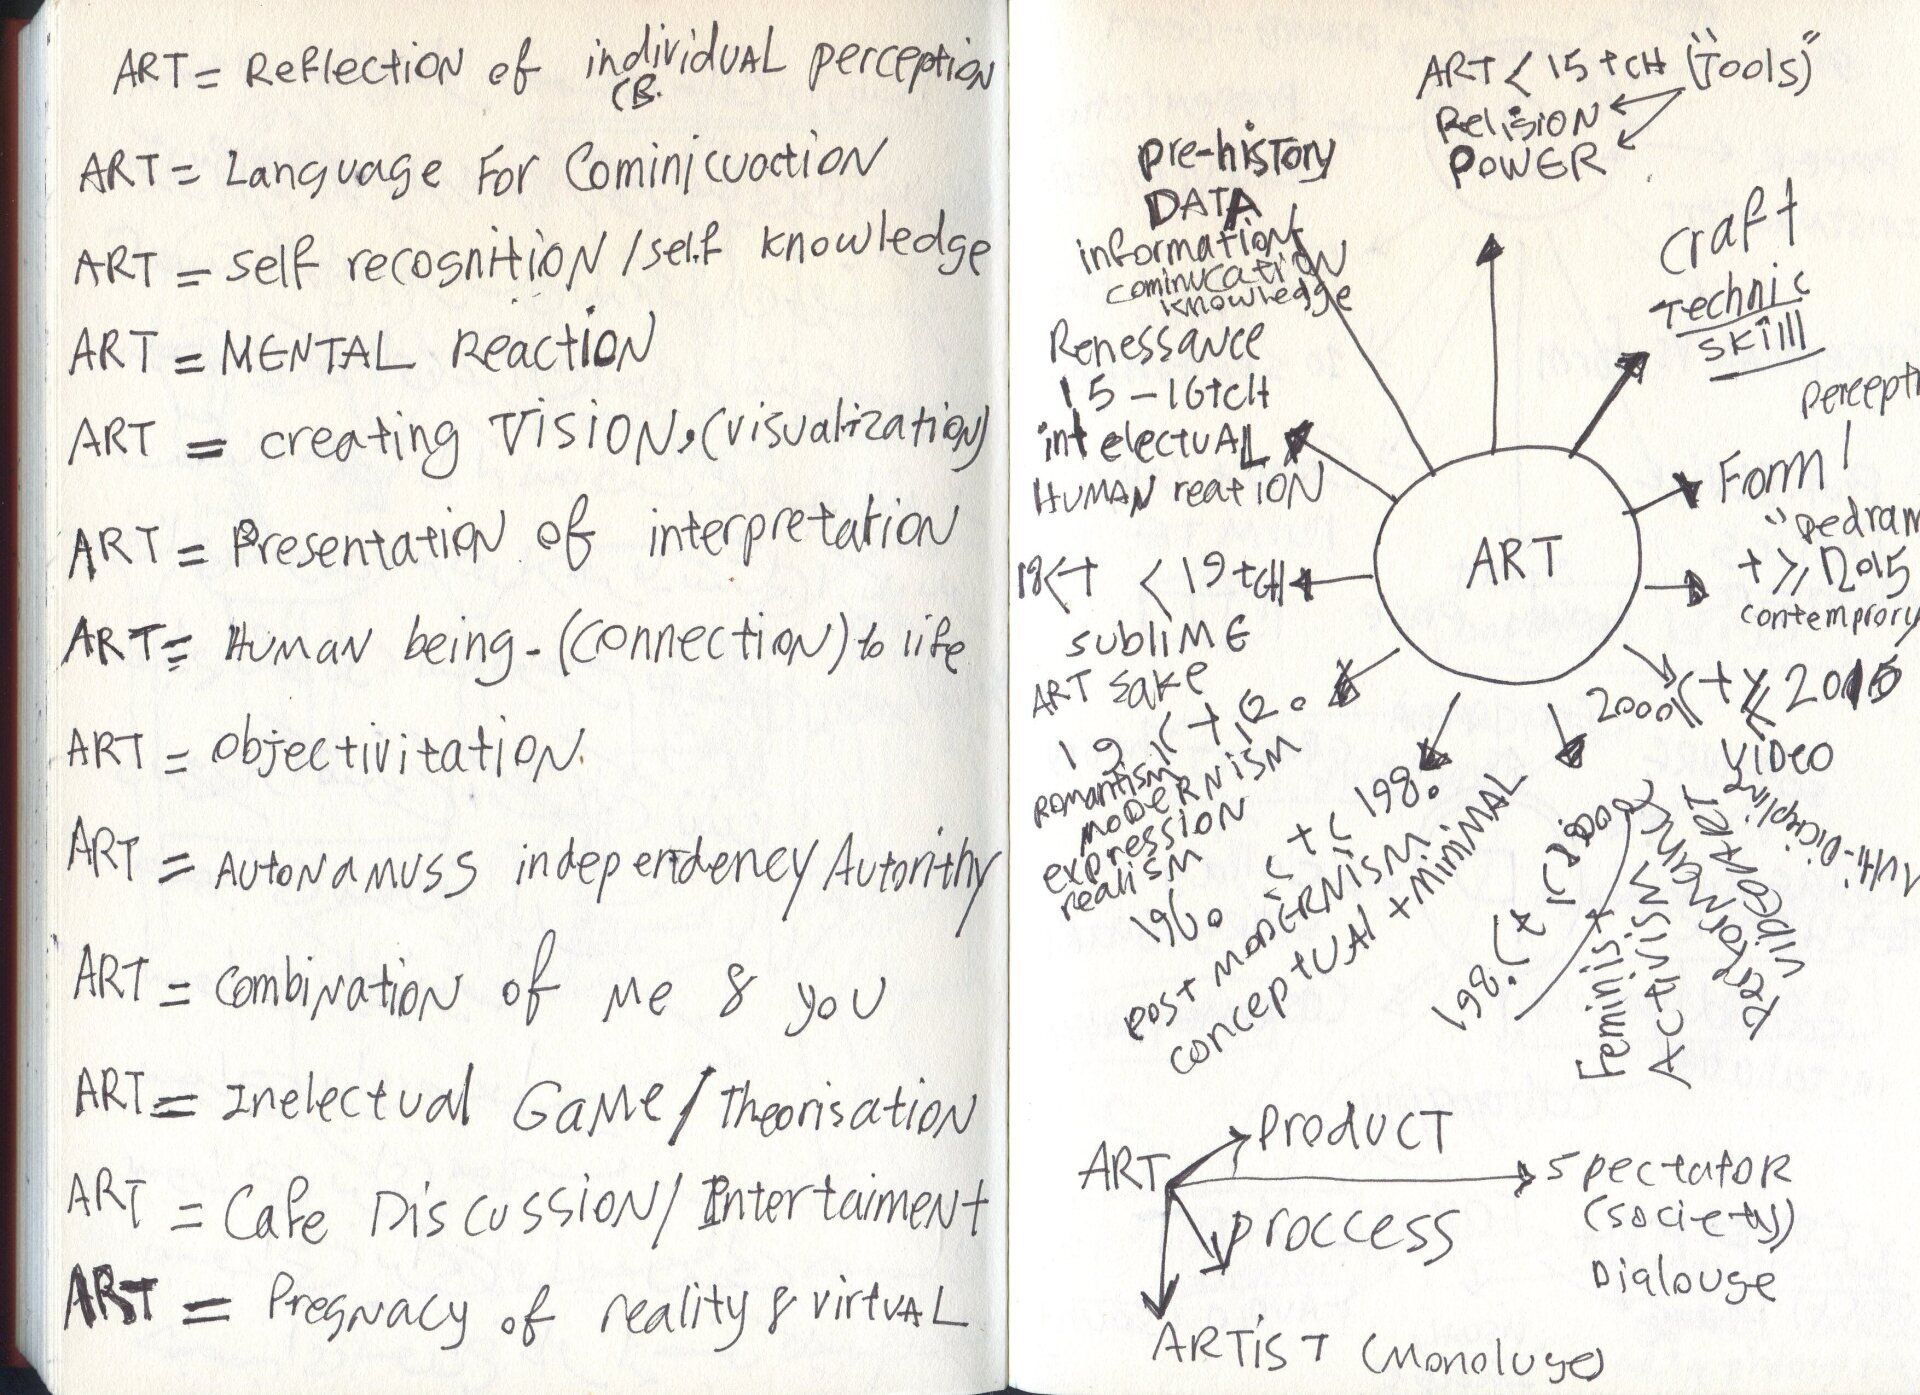 ART = Reflection of individual perception
(B.
ART = Language For Cominicuaction
ART = self recognition / self knowledge
ART = MENTAL Reaction
ART = creating VISION, (visualization)
ART = Presentation of interpretation
ART = Human being - (connection) to life
ART = Objectivitation.
ART = Autonamuss independency / Autorithy
ART = Combination of me & you
ART = Inelectual Game / Theorisation
ART = Cafe Discussion / Entertaiment
ART = Pregnacy of reality & virtual
ART < 15 tcH ("Tools")
Relision
POWER
pre-history
DATA
information
cominucation
knowledge
craft
technic
skill
Renessance
15 - 16tcH
intelectual
HUMAN reation
Form
"pedram
t ≥ 2015
contemprory
ART
18<t <19tcH
SUBLIME
ART sake
19
romantism
MODERNISM
expression
realism
2000 ≤ t ≤ 2015
VIDEO
1960 < t < 1980
POST MODERNISM
conceptual + minimal
Feminist
Activism
Performance
ART
PRODUCT
Spectator
(society)
Dialouge
PROCCESS
ARTIST (Monoluge)